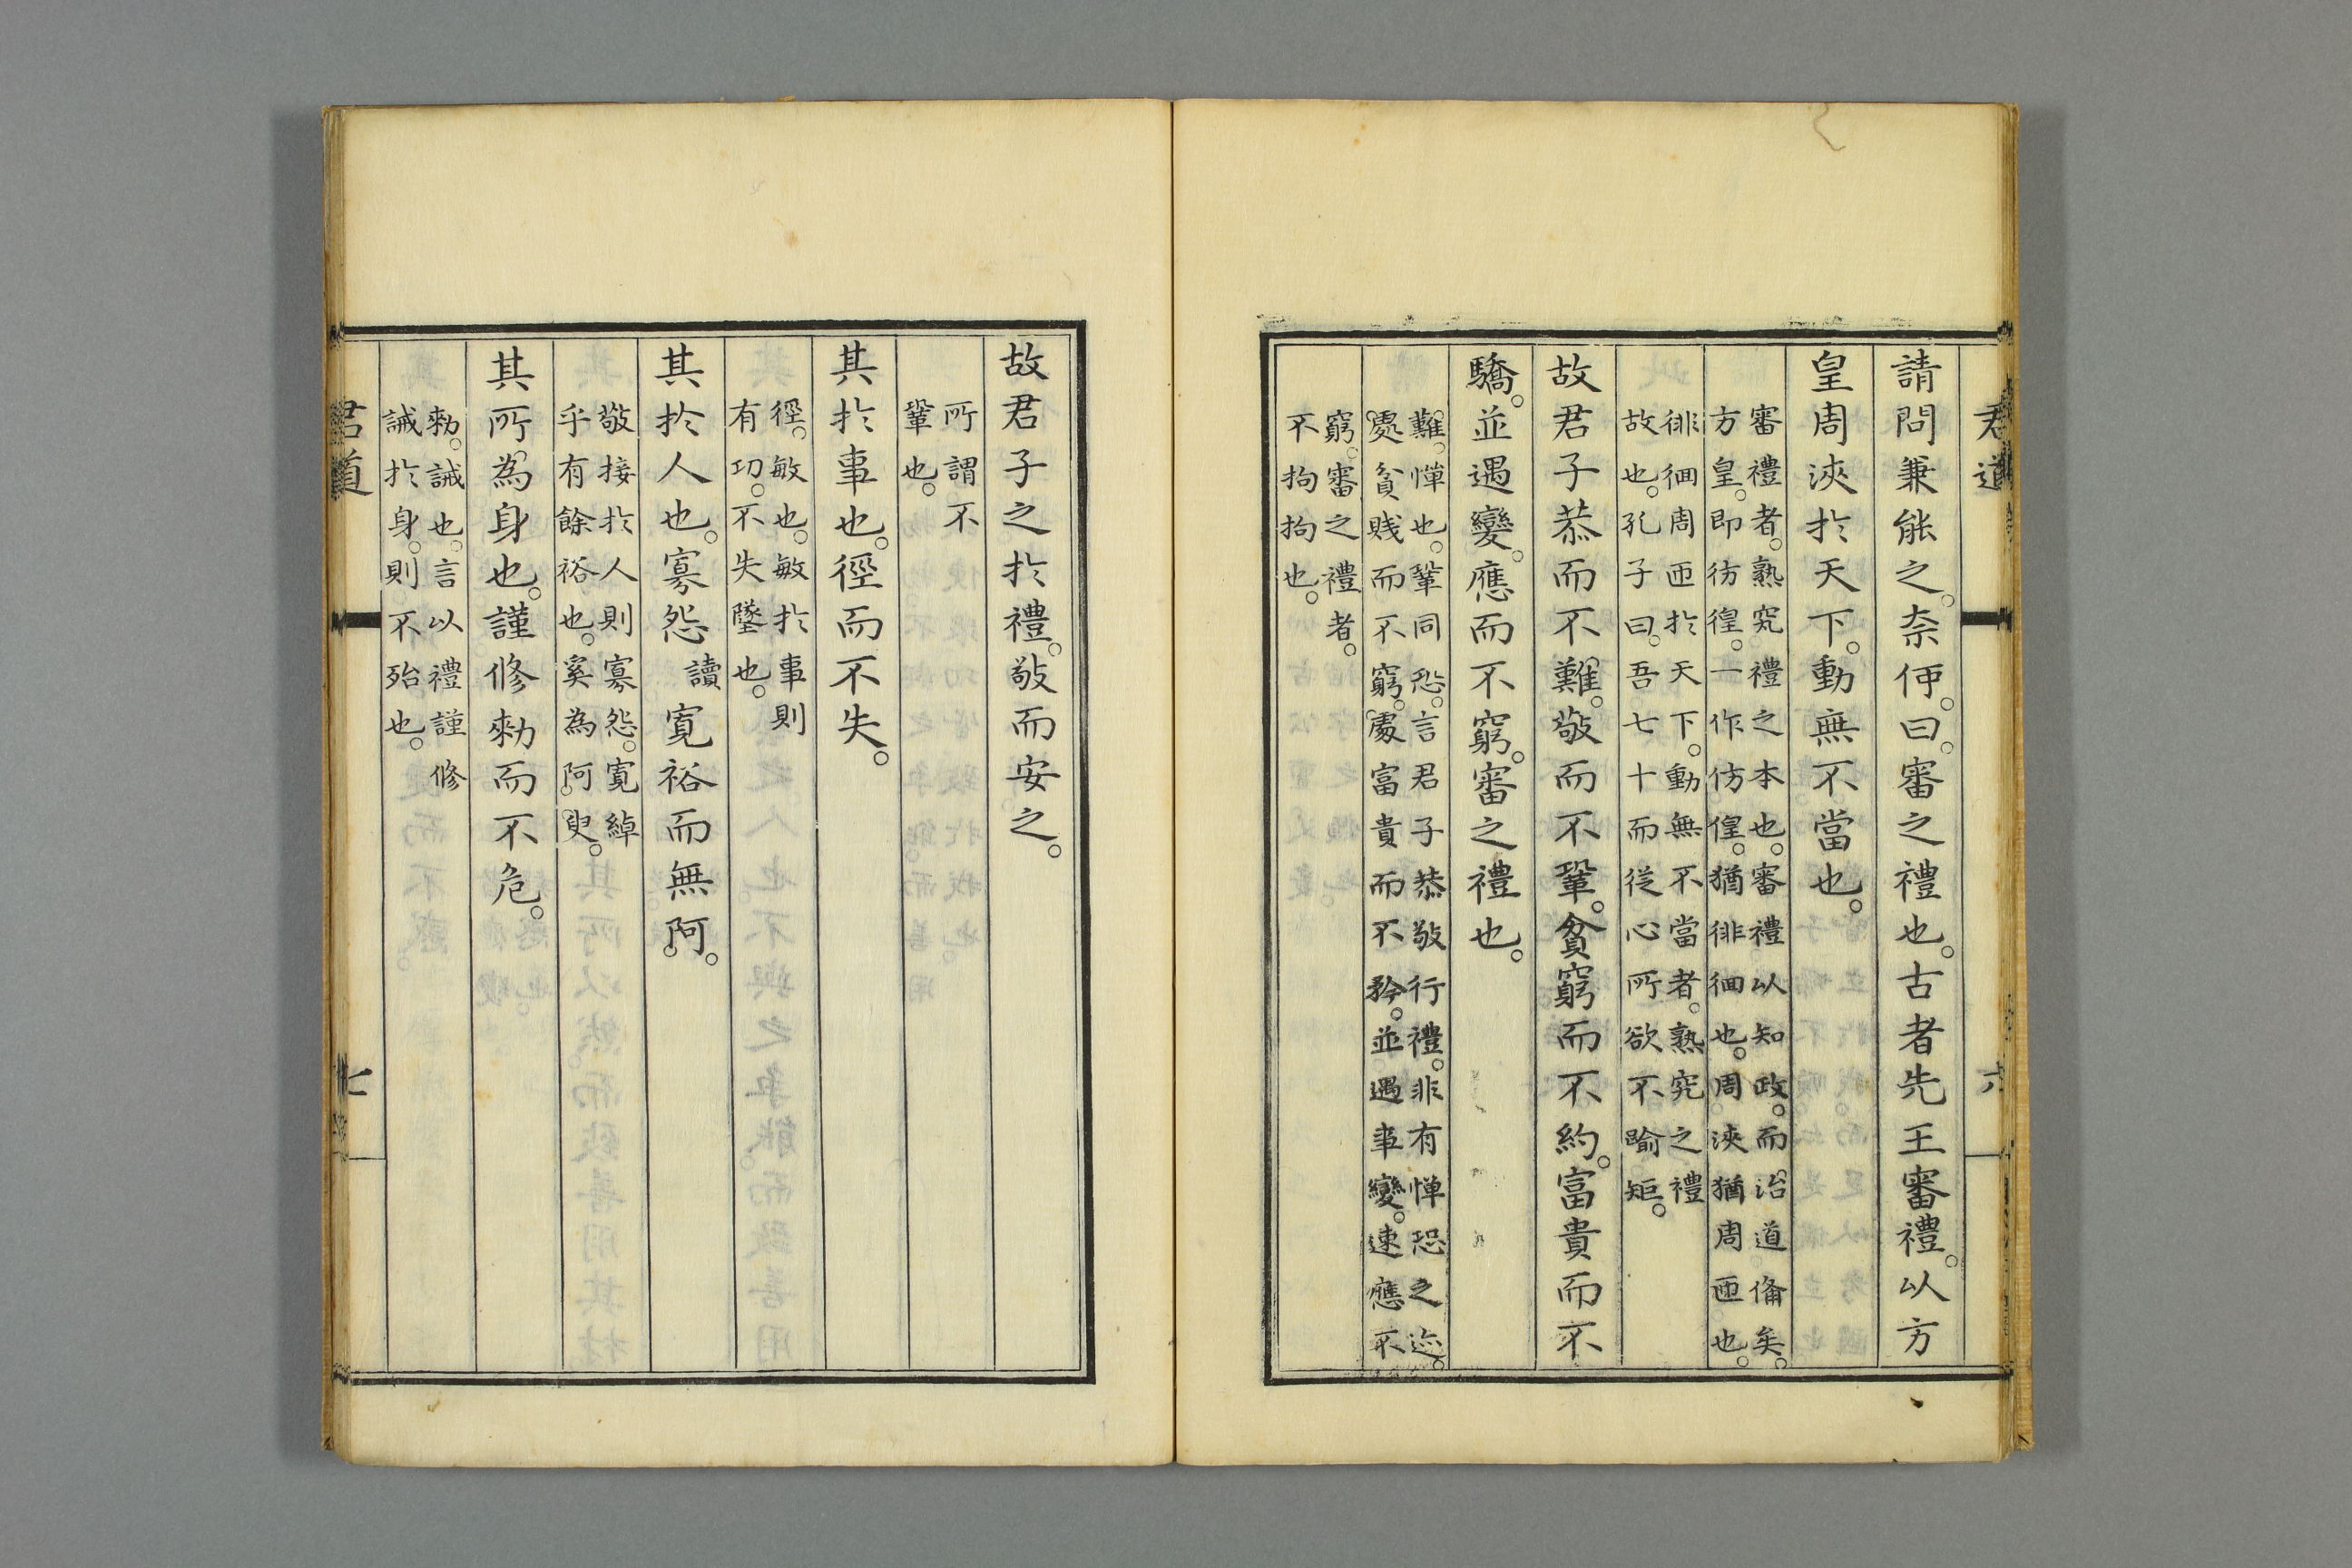 君道
六
請問兼能之。柰何。曰。審之禮也。古者先王審禮。以方
皇周浹於天下。動無不當也。
審禮者。熟究禮之本也。審禮以知政。而治道備矣。
方皇。即彷徨。一作仿偟。猶徘徊也。周浹猶周匝也。
徘徊周匝於天下。動無不當者。熟究之禮
故也。孔子曰。吾七十而從心所欲不踰矩。
故君子恭而不難。敬而不鞏。貧窮而不約。富貴而不
驕。並遇變。應而不窮。審之禮也。
難。憚也。鞏同恐。言君子恭敬行禮。非有憚恐之迹。
處貧賤而不窮。處富貴而不矜。並遇事變。速應不
窮。審之禮者。
不拘拘也。
故君子之於禮。敬而安之。
所謂不
鞏也。
其於事也。徑而不失。
徑。敏也。敏於事則
有功。不失墜也。
其於人也。寡怨讀寬裕而無阿。
敬接於人則寡怨。寬綽
乎有餘裕也。奚為阿臾。
其所為身也。謹修勑而不危。
勑。誡也。言以禮謹修
誡於身。則不殆也。
君道
七